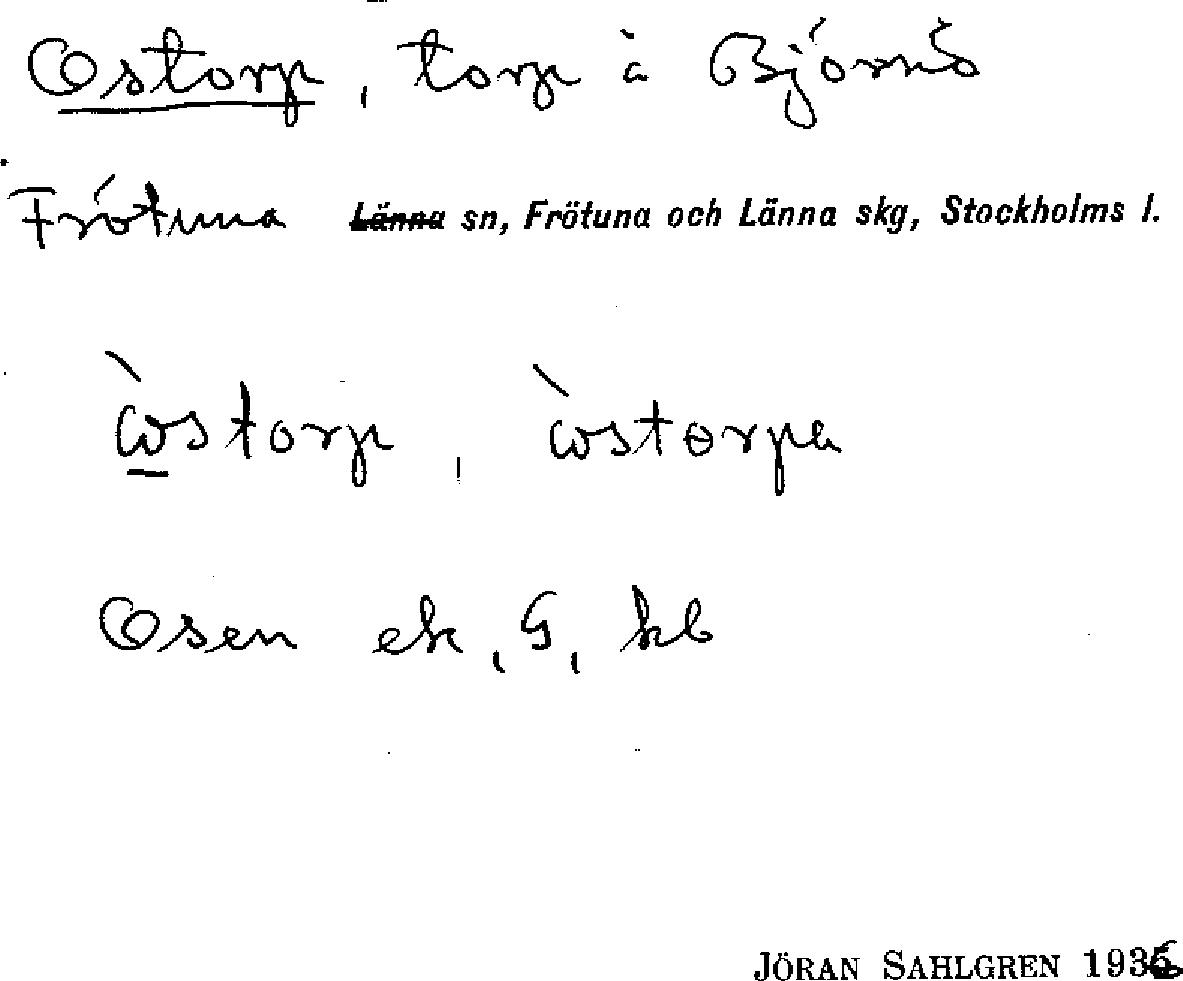 Ostorp, torp à Björnö
Frötuna Länna sn, Frötuna och Länna skg, Stockholms l.
ὼstorp, ὼstorpa
Osen ek, G, kb
JÖRAN SAHLGREN 1936